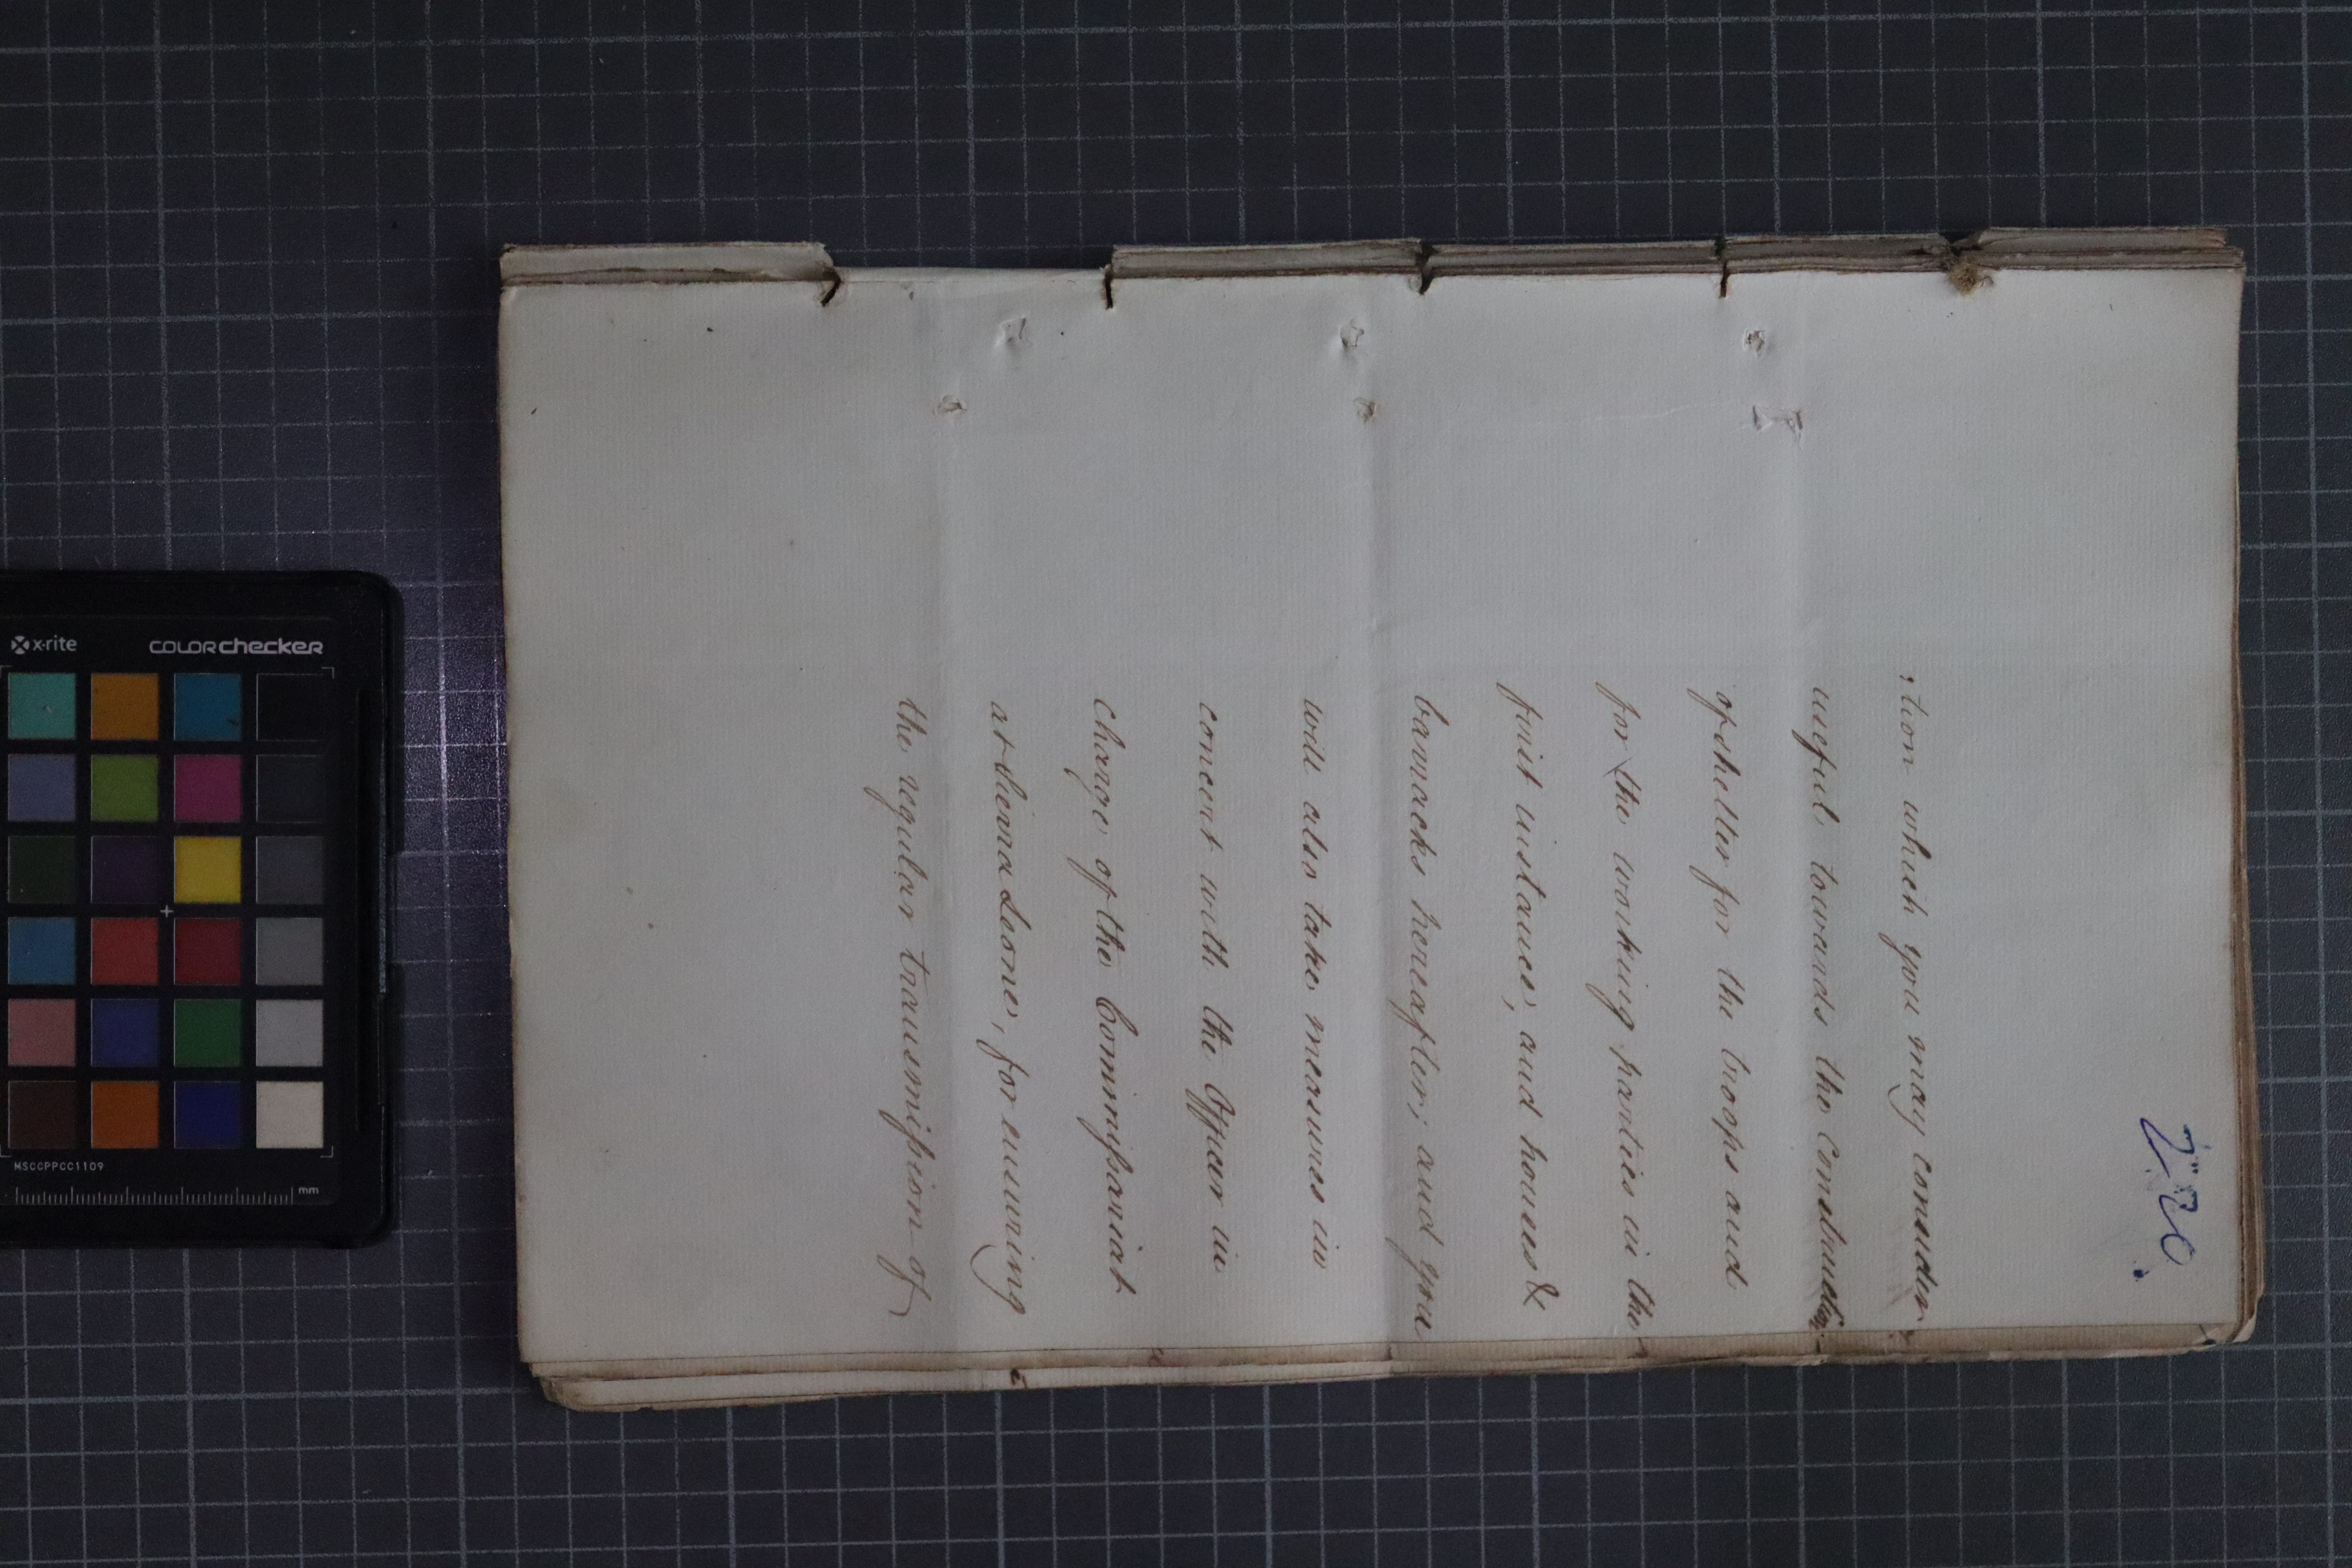 220.
:tion which you may consider
useful towards the construction
of shelter for the troops and
for the working parties in the
first instance, and houses &
barracks hereafter; and you
will also take measures in
concert with the Officer in
charge of the Commissariat
at Sierra Leone, for ensuring
the regular transmission of
x-rite
colorchecker
MSCCPPCC1109
mm